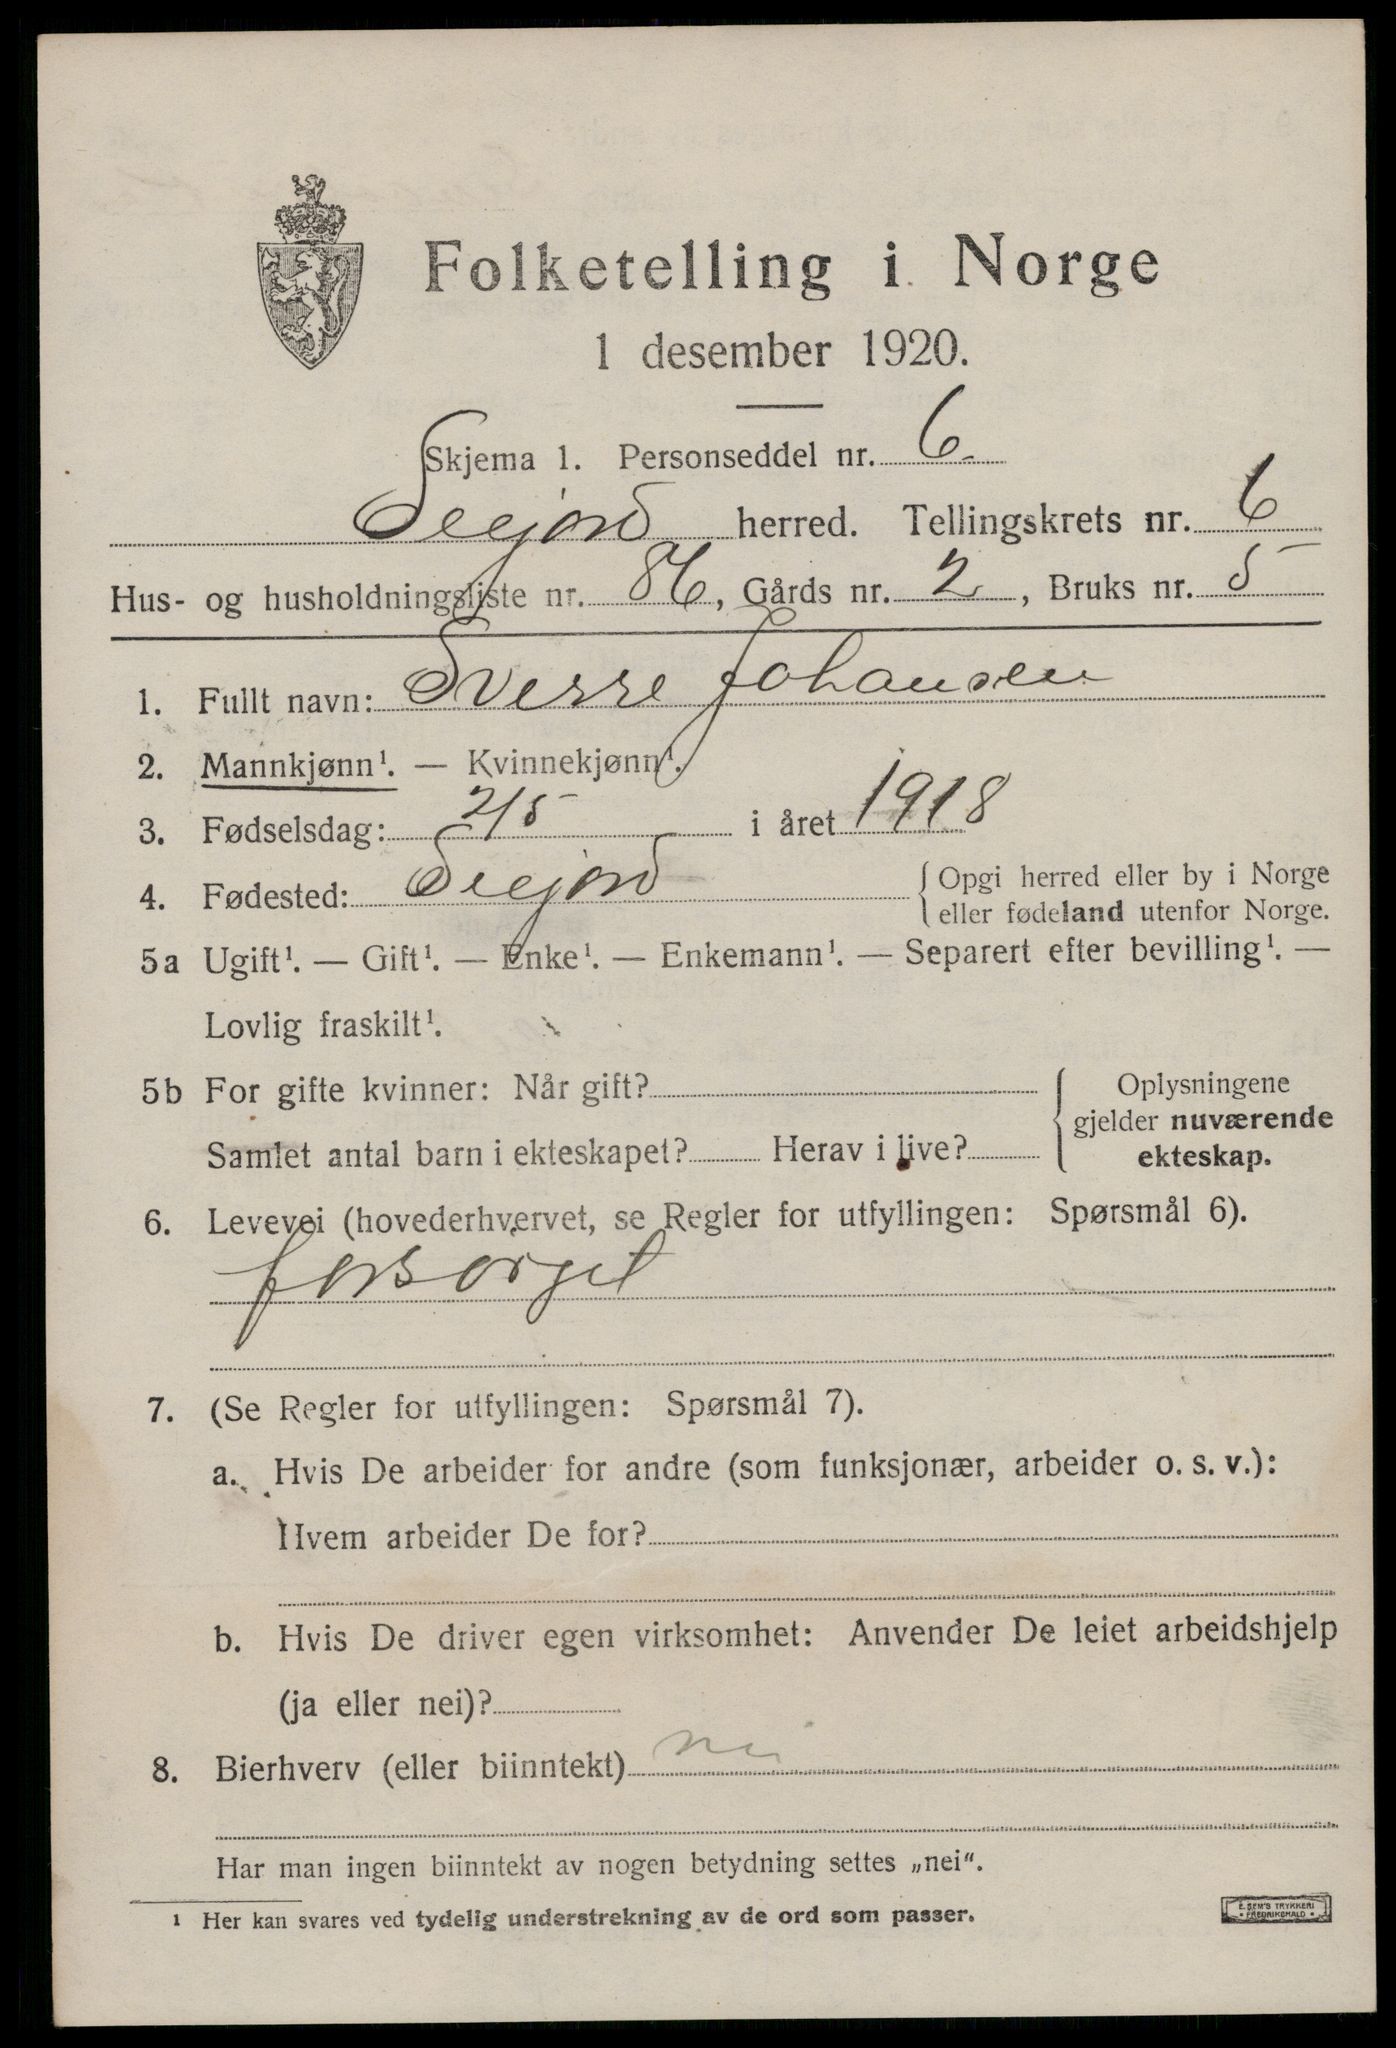 Folketelling i Norge
1 desember 1920.
Skjema 1. Personseddel nr. 6
herred. Tellingskrets nr. 6
Hus- og husholdningsliste nr. 86, Gårds nr. 2, Bruks nr. 5
1. Fullt navn: Sverre Johansen
2. Mannkjønn¹. — Kvinnekjønn¹.
3. Fødselsdag: 2/5 i året 1918
4. Fødested: {Opgi herred eller by i Norge
eller fødeland utenfor Norge.
5a Ugift¹. — Gift¹. — Enke¹. — Enkemann¹. — Separert efter bevilling¹. —
Lovlig fraskilt¹.
5b For gifte kvinner: Når gift? { Oplysningene
gjelder nuværende
Samlet antal barn i ekteskapet? Herav i live? ekteskap.
6. Levevei (hovederhvervet, se Regler for utfyllingen: Spørsmål 6).
forsørget
7. (Se Regler for utfyllingen: Spørsmål 7).
a. Hvis De arbeider for andre (som funksjonær, arbeider o. s. v.):
Hvem arbeider De for?
b. Hvis De driver egen virksomhet: Anvender De leiet arbeidshjelp
(ja eller nei)?
8. Bierhverv (eller biinntekt) nei
Har man ingen biinntekt av nogen betydning settes „nei“.
¹ Her kan svares ved tydelig understrekning av de ord som passer.
E. SEM'S TRYKKERI
• FREDRIKSHALD •